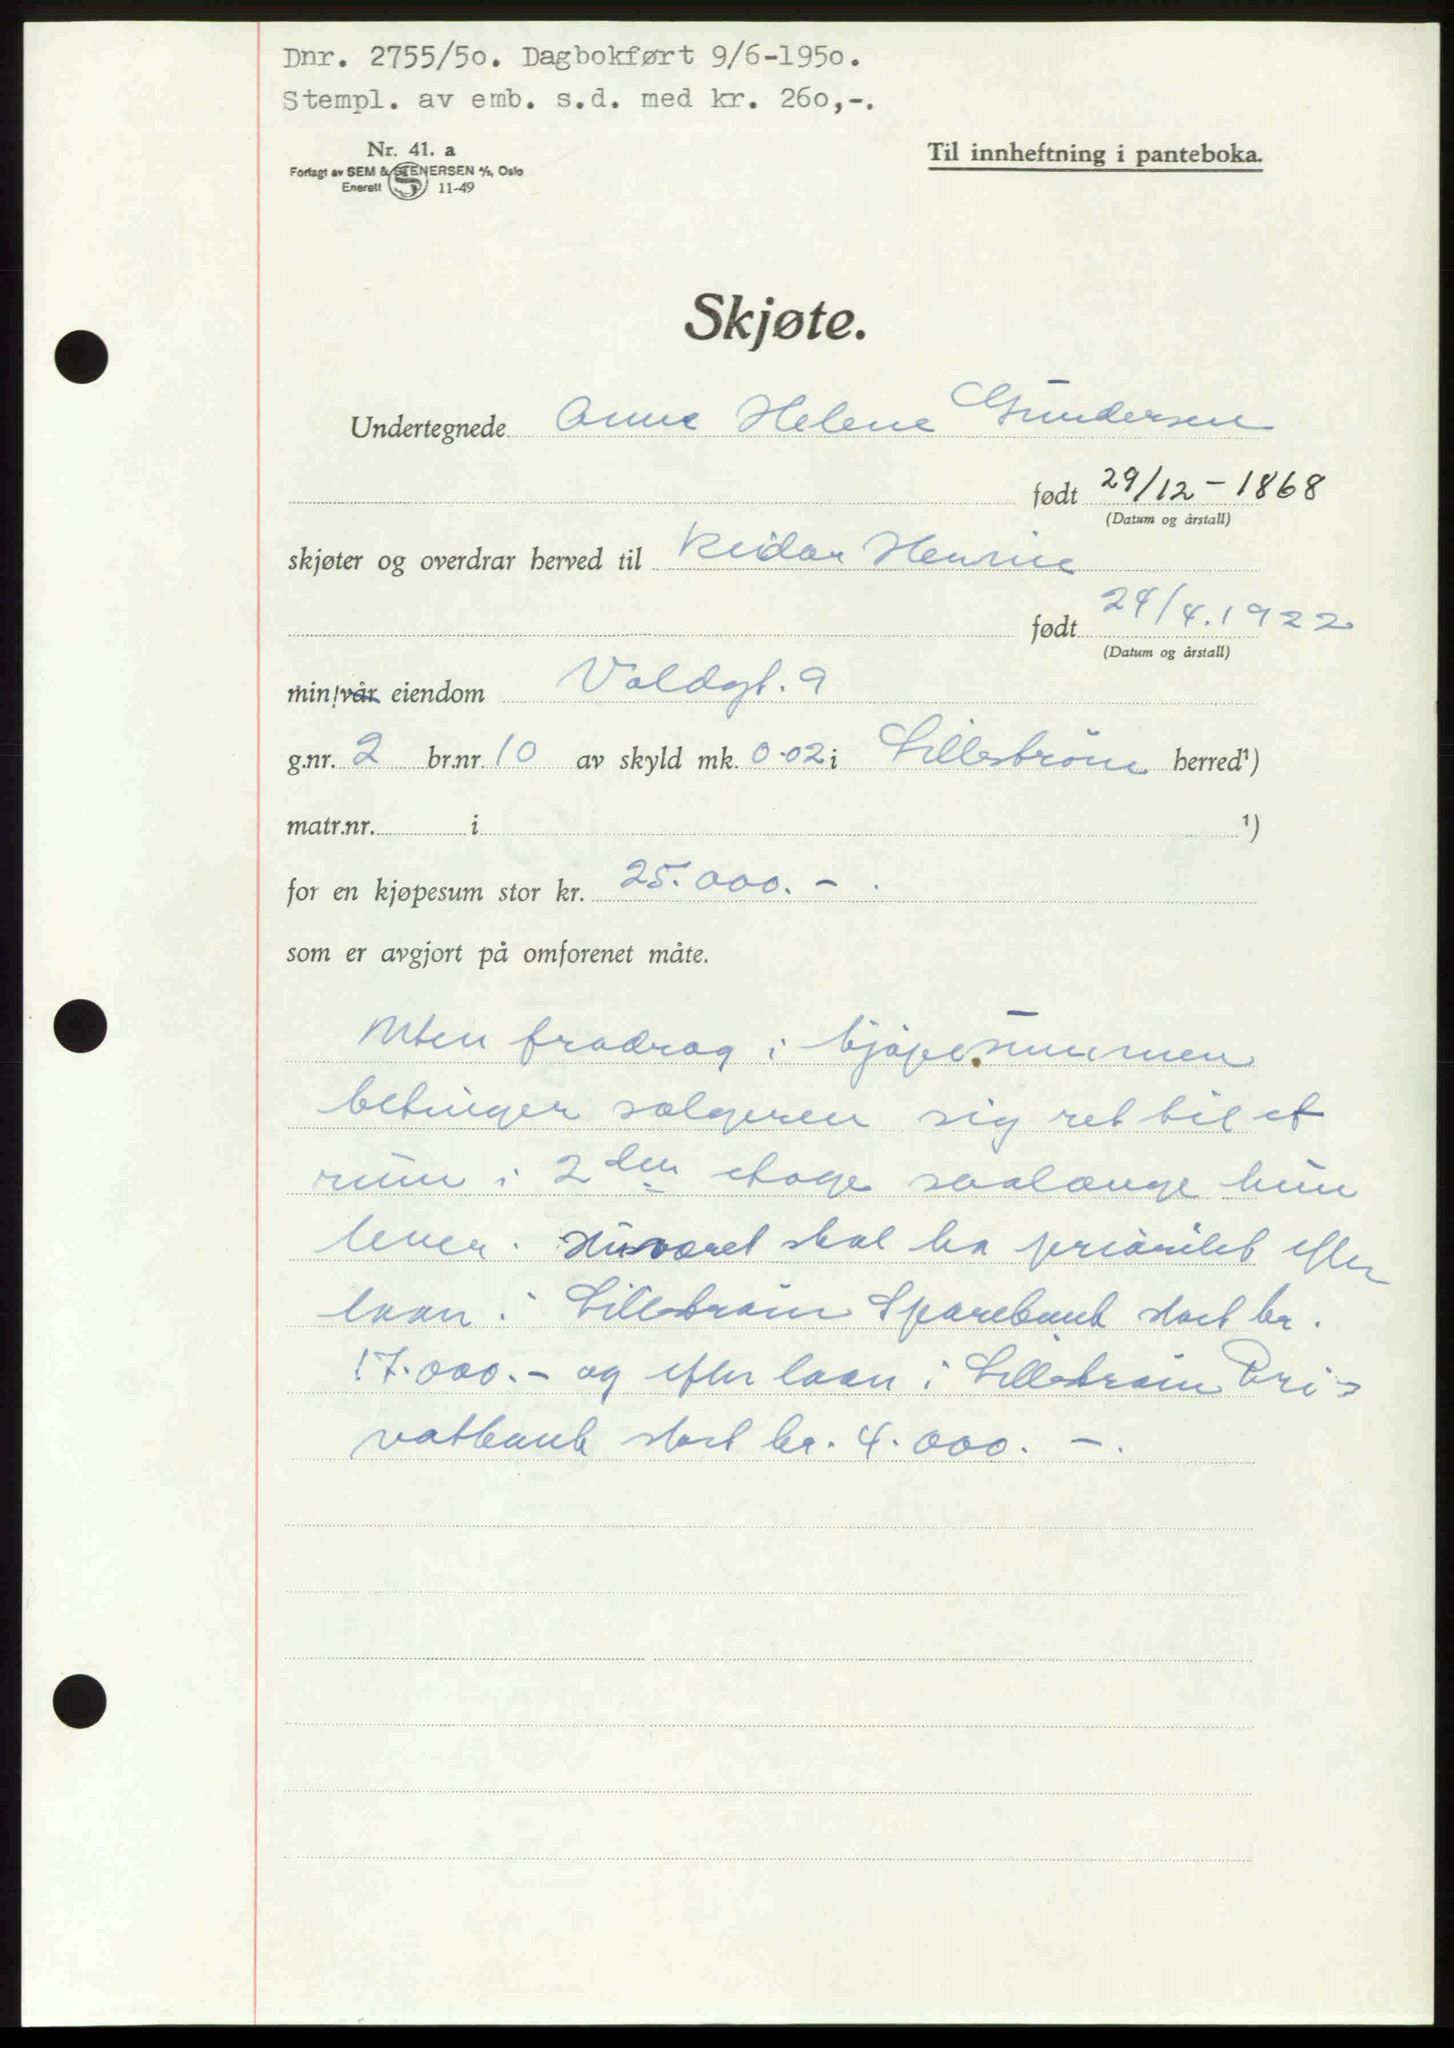 Dnr. 2755/50. Dagbokført 9/6-1950.
Stempl. av emb. s.d. med kr. 260,-.
Nr. 41. a
Forlagt av SEM & STENERSEN A/S, Oslo
Enerett 11-49
Til innheftning i panteboka.
Skjøte.
Undertegnede Anne Helene Gundersen
født 29/12 - 1868
(Datum og årstall)
skjøter og overdrar herved til Reidar Henrik
født 24/4. 1922
(Datum og årstall)
min/vår eiendom Voldgt. 9
g.nr. 2 br.nr. 10 av skyld mk. 0.02 i Lillestrøm herred¹)
matr.nr. i ¹)
for en kjøpesum stor kr. 25.000.-.
som er avgjort på omforenet måte.
Uten fradrag i kjøpesummen
betinger sælgeren sig ret til et
rum i 2den etage saalænge hun
lever. Husværet skal ha prioritet efter
laan i Lillestrøm Sparebank stort kr.
17.000.- og efter laan i Lillestrøm Pri-
vatbank stort kr. 4.000.-.